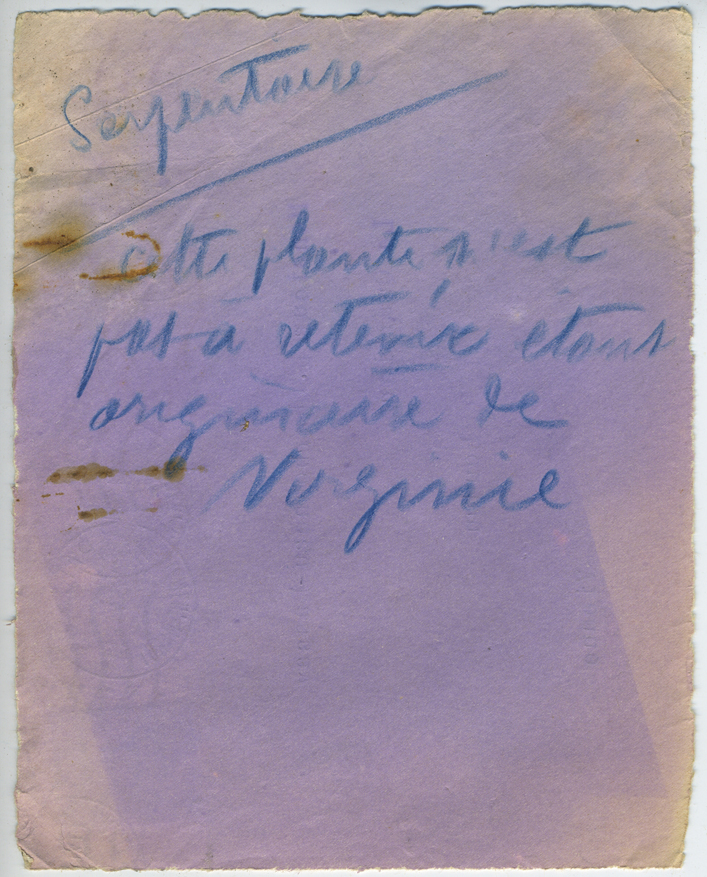 Serpentaire
Cette plante n'est
pas à retenir étant
originaire de
Virginie